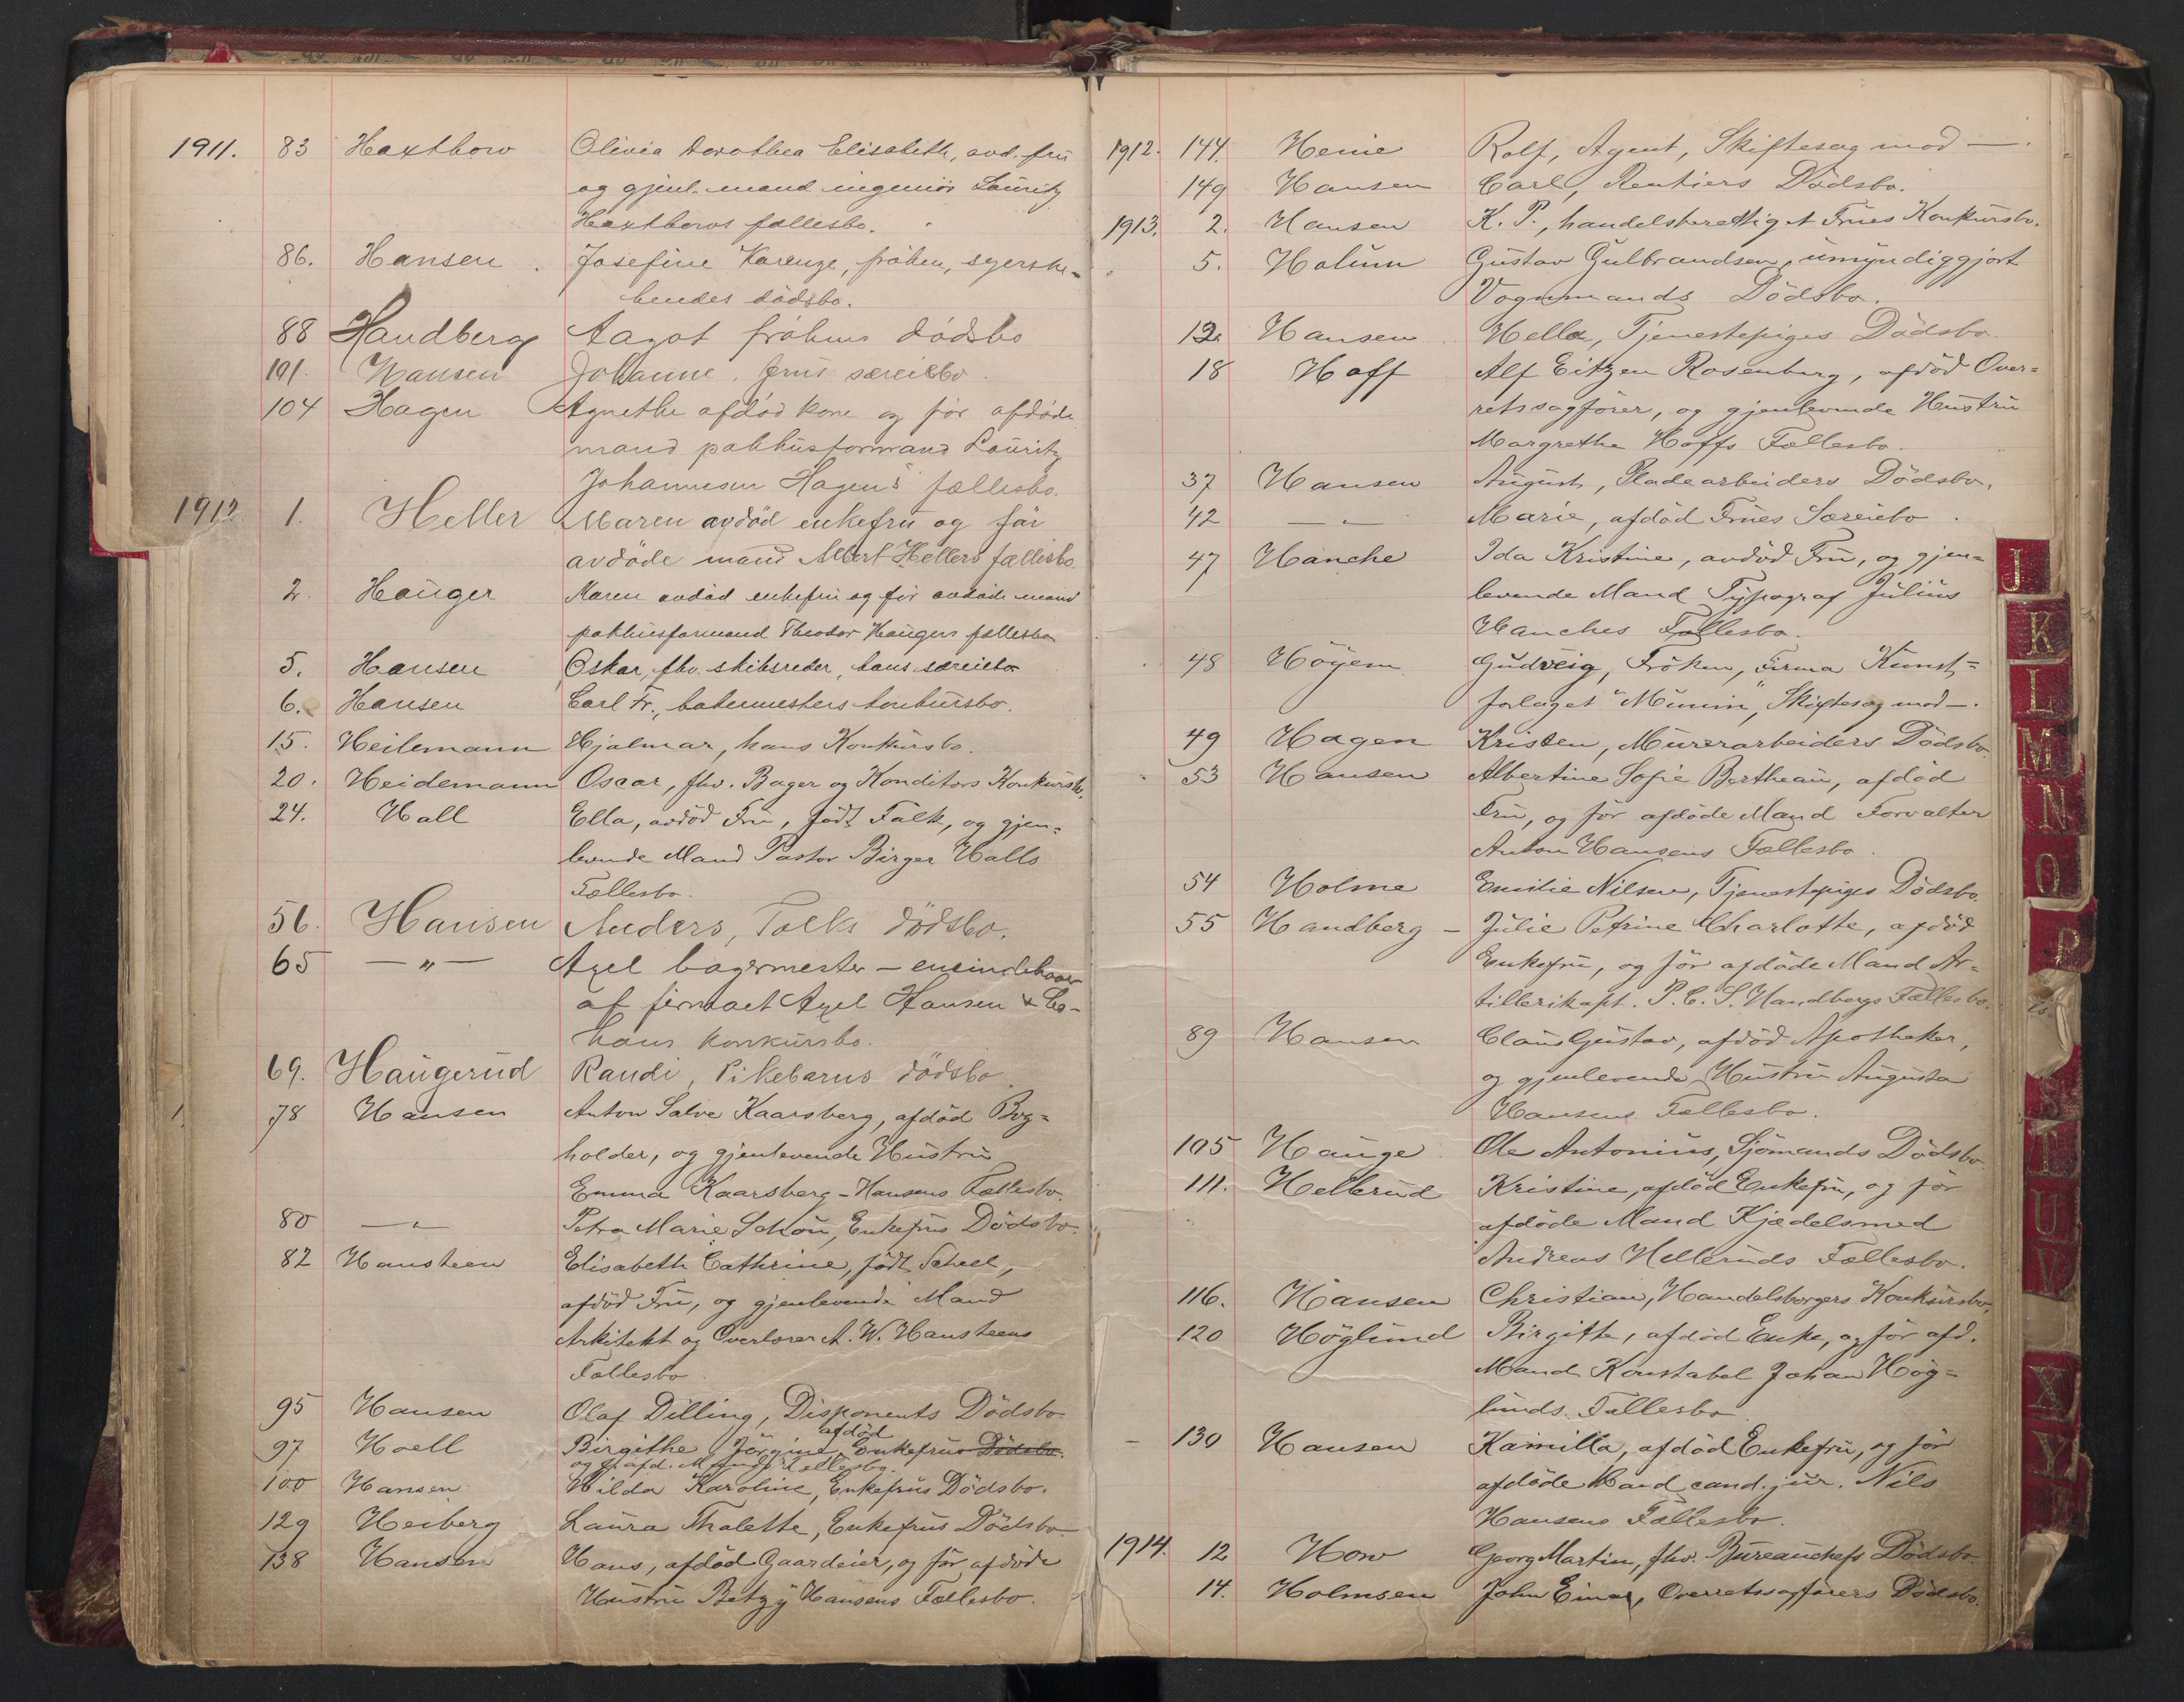 1911. 83 Haxthow Olivia Dorothea Elisabeth, avd. fru
og gjenl. mand ingeniör Lauritz
Haxthows fællesbo.
86. Hansen Josefine Karenze, fröken, syerske
hendes dödsbo.
88 Handberg Aagot frökens dödsbo
101. Hansen Johanne, frus særeiebo.
104 Hagen Agnethe afdöd kone og för afdöde
mand pakhusformand Lauritz
Johannesen Hagens fællesbo.
1912 1. Heller Maren avdöd enkefru og för
avdöde mand Albert Hellers fællesbo.
2. Hauger Maren avdöd enkefru og för avdöde mand
pakhusformand Theodor Haugers fællesbo
5. Hansen Oskar, fhv. skibsreder, hans særeiebo
6. Hansen Carl Fr., bakermesters konkursbo.
15. Heilemann Hjalmar, hans Konkursbo.
20. Heidemann Oscar, fhv. Bager og Konditors Konkursb.
24. Hall Ella, avdöd Fru, födt Falk, og gjen-
levende Mand Pastor Birger Halls
Fællesbo.
56. Hansen Anders, Tolks dödsbo.
65 — " — Axel bagermester – eneindehaver
af firmaet Axel Hansen & Co –
hans konkursbo.
69. Haugerud Randi, Pikebarns dödsbo.
78 Hansen Anton Salve Kaarsberg, afdöd Bog-
holder, og gjenlevende Hustru
Emma Kaarsberg-Hansens Fællesbo.
80 — " — Petra Marie Schou, Enkefrus Dödsbo.
82 Hansteen Elisabeth Cathrine, födt Scheel,
afdöd Fru, og gjenlevende Mand
Arkitekt og Overlærer A. W. Hansteens
Fællesbo
95 Hansen Olaf Dilling, Disponents Dödsbo
afdöd
97 Hoell Birgithe Jörgine, Enkefrus Dödsbo.
og för afd. Mands Fællesbo.
100 Hansen Hilda Karoline, Enkefrus Dödsbo.
129 Heiberg Laura Thalette, Enkefrus Dödsbo
138 Hansen Hans, afdöd Gaardeier, og för afdöde
Hustru Betzy Hansens Fællesbo.
1912. 144. Henie Rolf, Agent, Skiftesag mod — .
149 Hansen Carl, Rentiers Dödsbo.
1913. 2. Hansen K. P., handelsberettiget Frues Konkursbo.
5. Holum Gustav Gulbrandsen, umyndiggjort
Vognmands Dödsbo.
12. Hansen Hella, Tjenestepiges Dödsbo
18 Hoff Alf Eitzen Rosenberg, afdöd Over-
retssagförer, og gjenlevende Hustru
Margrethe Hoffs Fællesbo.
37 Hansen August, Pladearbeiders Dödsbo.
42 — " — Marie, afdöd Frues Særeiebo.
47 Hanche Ida Kristine, avdöd Fru, og gjen-
levende Mand Typograf Julius
Hanches Fællesbo.
48 Höyem Gudveig, Fröken, Firma Kunst-
forlaget "Mimir", Skiftesag mod —.
49 Hagen Kristen, Murerarbeiders Dödsbo
53 Hansen Albertine Sofie Bertheau, afdöd
Fru, og för afdöde Mand Forvalter
Anton Hansens Fællesbo.
54 Holme Emilie Nilsen, Tjenestepiges Dödsbo.
55 Handberg – Julie Petrine Charlotte, afdöd
Enkefru, og för afdöde Mand Ar-
tillerikapt. P. C. S. Handbergs Fællesbo.
89 Hansen Claus Gustav, afdöd Apotheker,
og gjenlevende Hustru Augusta
Hansens Fællesbo.
105 Hauge Ole Antonius, Sjömands Dödsbo
111. Hellerud Kristine, afdöd Enkefru, og för
afdöde Mand Kjædelsmed
Andreas Helleruds Fællesbo.
116. Hansen Christian, Handelsborgers Konkursbo.
120 Höglund Birgitte, afdöd Enke, og för afd.
Mand Konstabel Johan Hög-
lunds Fællesbo
130 Hansen Kamilla, afdöd Enkefru, og för
afdöde Mand cand. jur. Nils
Hansens Fællesbo.
1914. 12 How Georg Martin, fhv. Bureauchefs Dödsbo
14. Holmsen John Einar, Overretssagförers Dödsbo.
J
K
L
M
N
O
P
S
T
U
V
X
Y